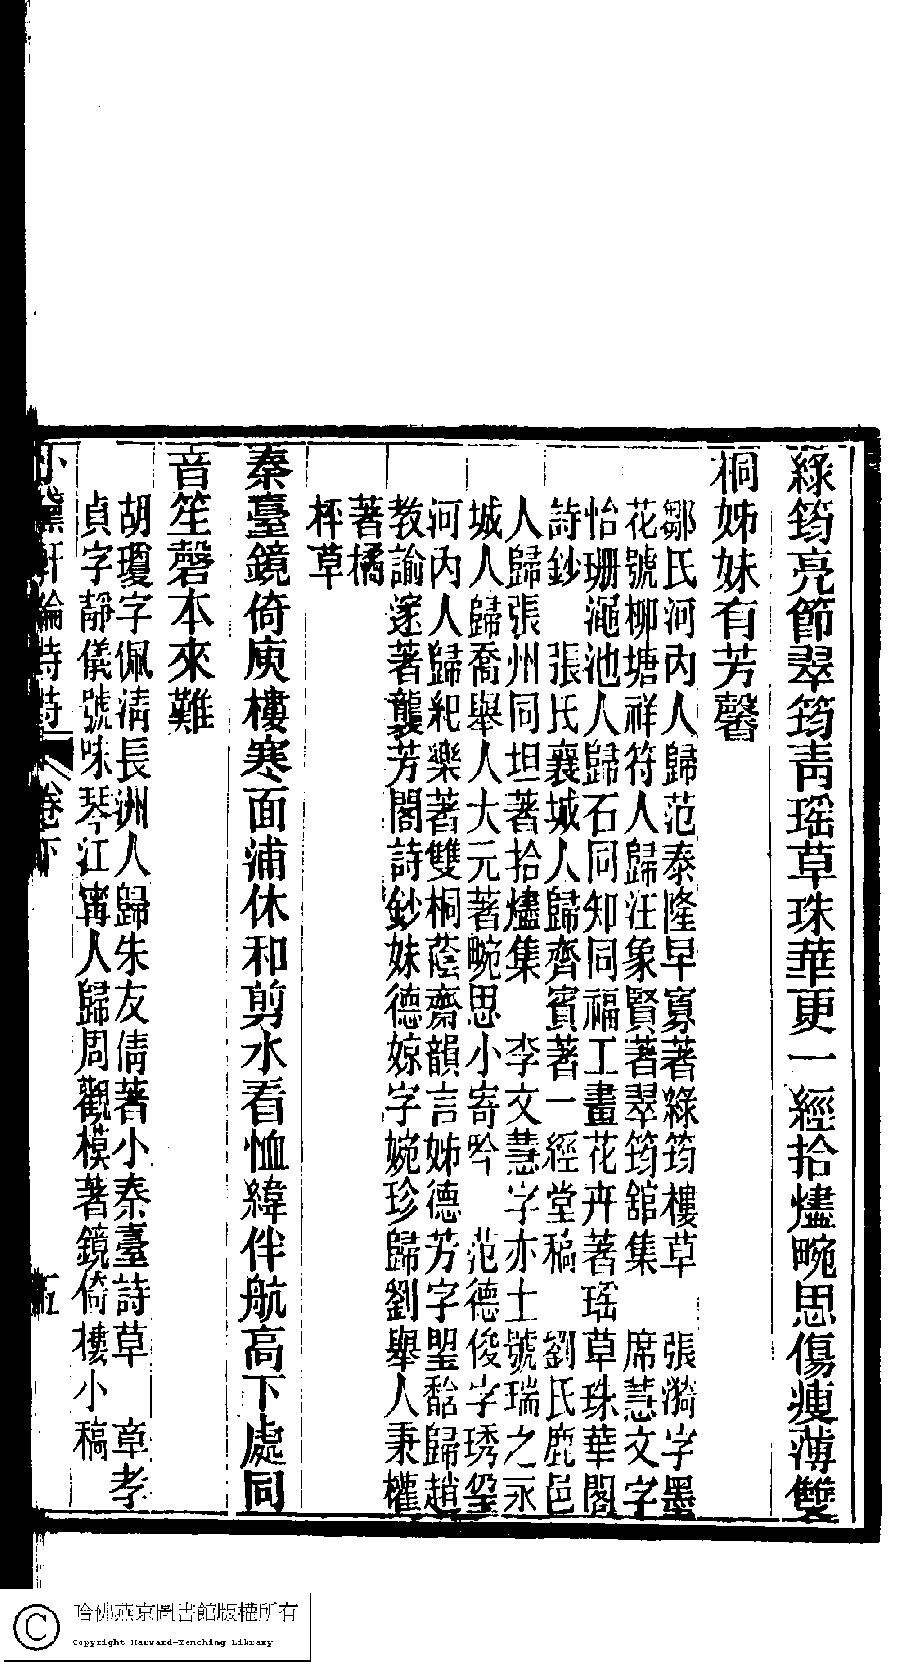 綠筠亮節翠筠青瑤草珠華更一經拾燼畹思傷瘦薄雙
桐姊妹有芳馨
鄒氏河內人歸范泰隆早寡著綠筠樓草　張漪字墨
花號柳塘祥符人歸汪象賢著翠筠舘集　席慧文字
怡珊澠池人歸石同知同福工畫花卉著瑤草珠華閣
詩鈔　張氏襄城人歸齊賓著一經堂稿　劉氏鹿邑
人歸張州同坦著拾燼集　李文慧字亦士號瑞之永
城人歸喬舉人大元著畹思小寄吟　范德俊字琇瑩
河內人歸紀樂著雙桐蔭齋韻言姊德芳字馠歸趙
敎諭邃著襲芳閣詩鈔妹德婛字婉珍歸劉舉人秉權
著橘
枰草
秦臺鏡倚庾樓寒面浦休和剪水看恤緯伴航高下處同
音笙磬本來難
胡瓊字佩淸長洲人歸朱友倩著小秦臺詩草　章孝
貞字靜儀號味琴江寗人歸周觀模著鏡倚樓小稿
小黛軒論詩詩
卷下
五
哈佛燕京圖書館版權所有
Copyright Harvard-Yenching Library